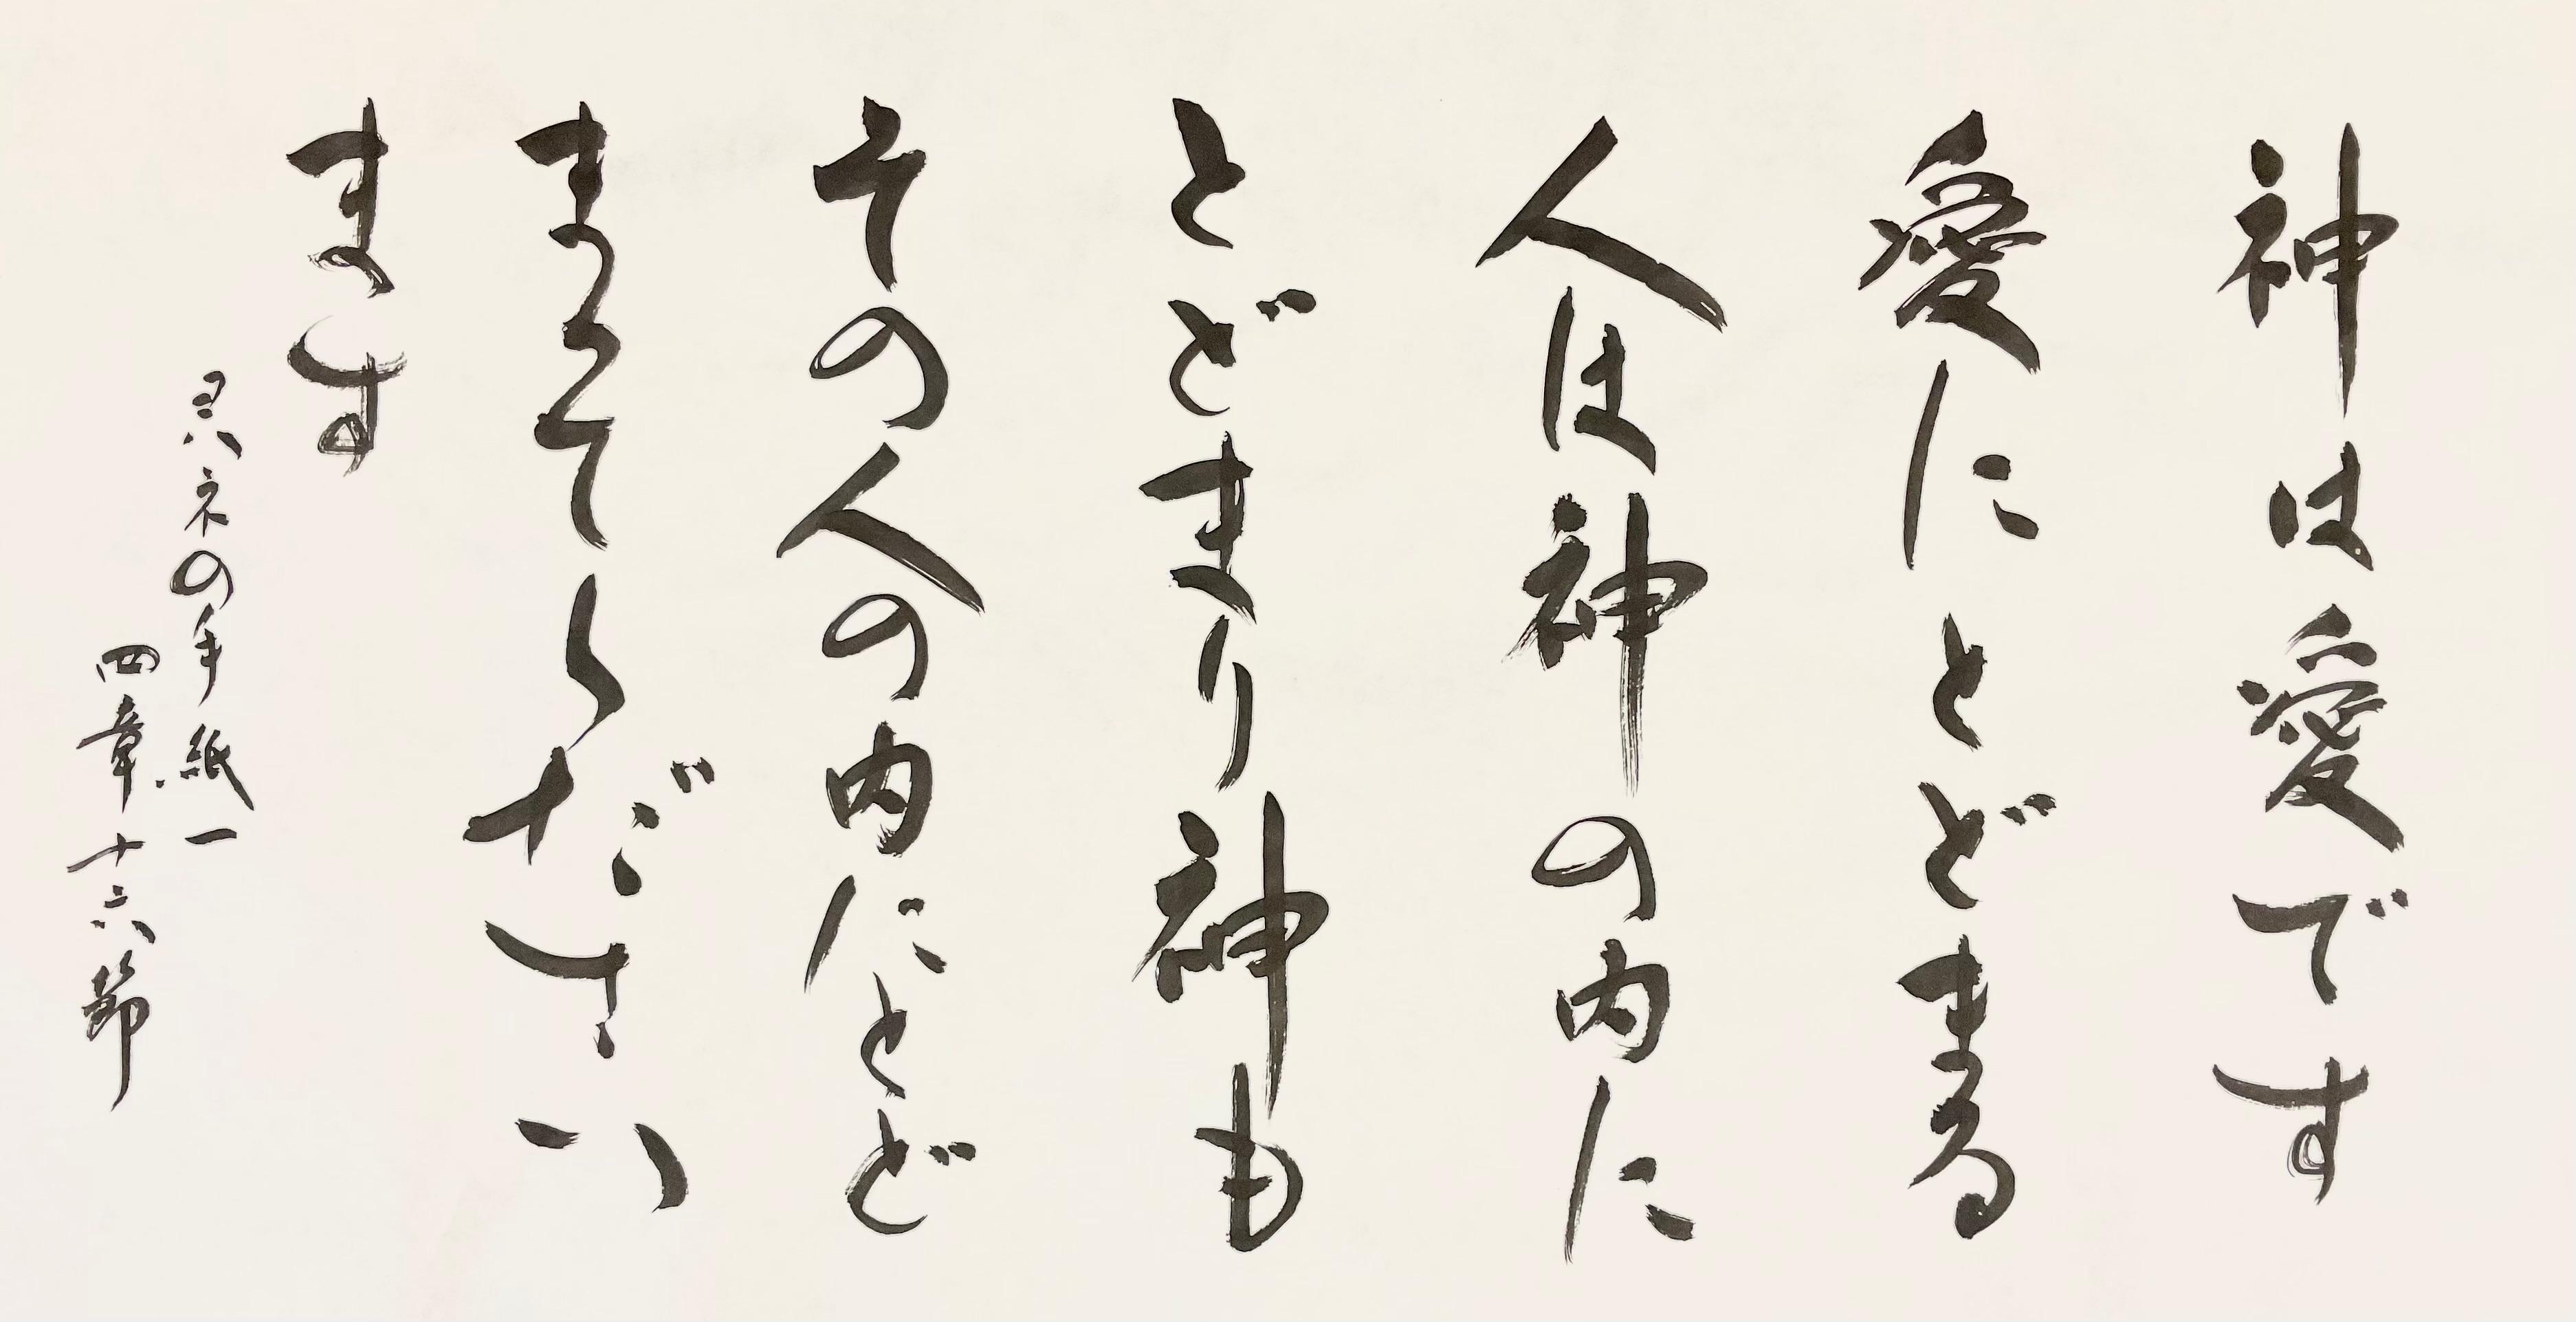 神は愛です
愛にとどまる
人は神の内に
とどまり神も
その人の内にとど
まってください
ます
ヨハネの手紙一
四章十六節